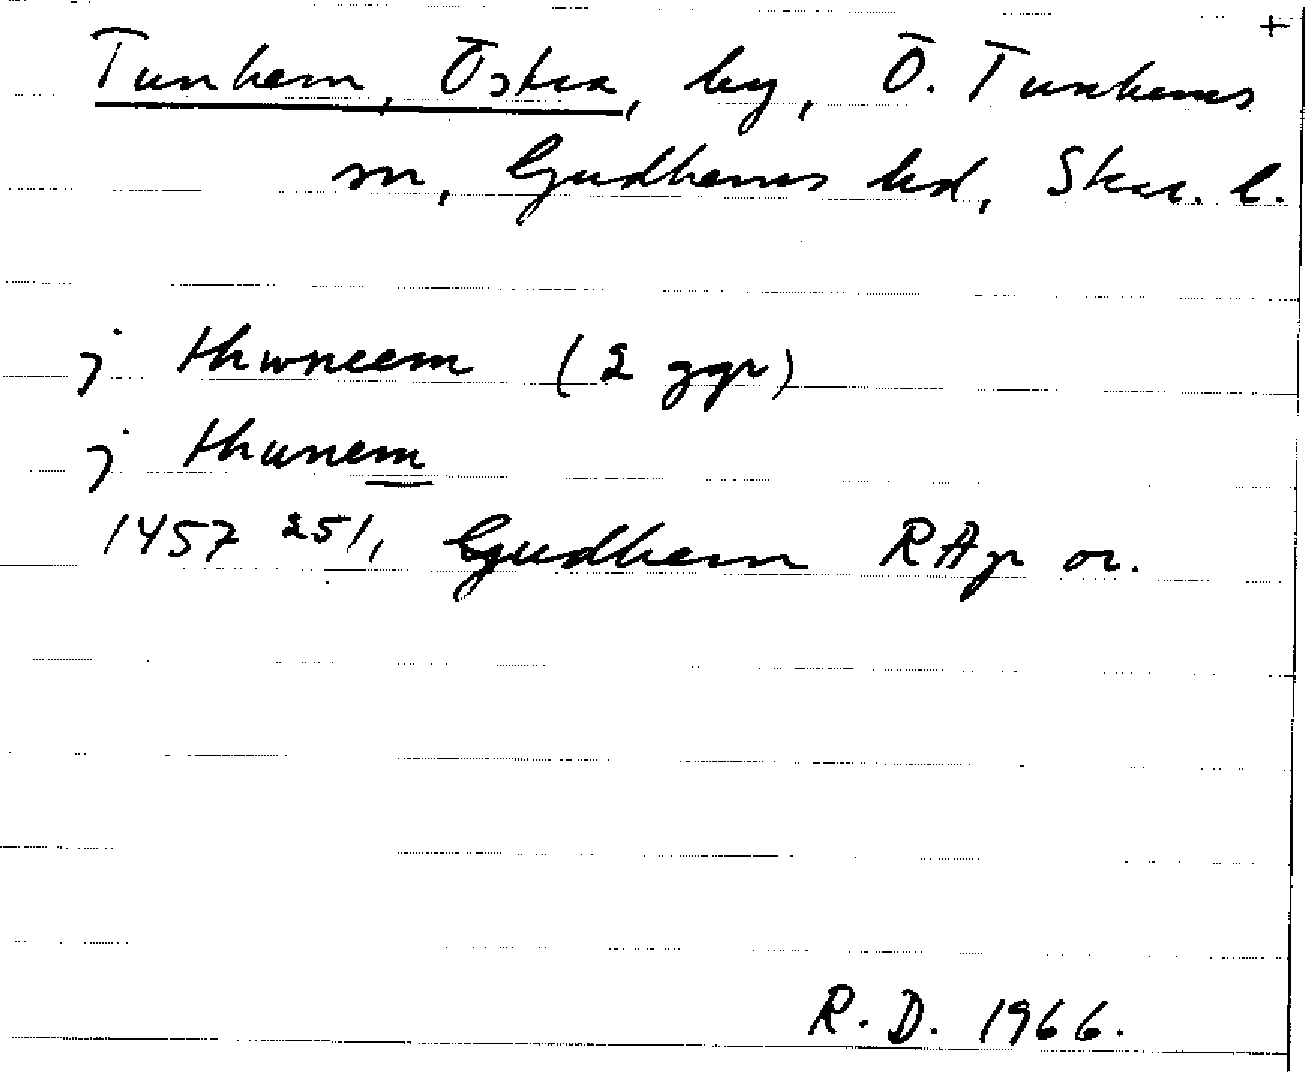 +
Tunhem, Östra, by, Ö. Tunhems
sn, Gudhems hd, Skar. l.
j thwneem (2 ggr)
j thunem
1457 25/1 Gudhem RAp or.
R. D. 1966.